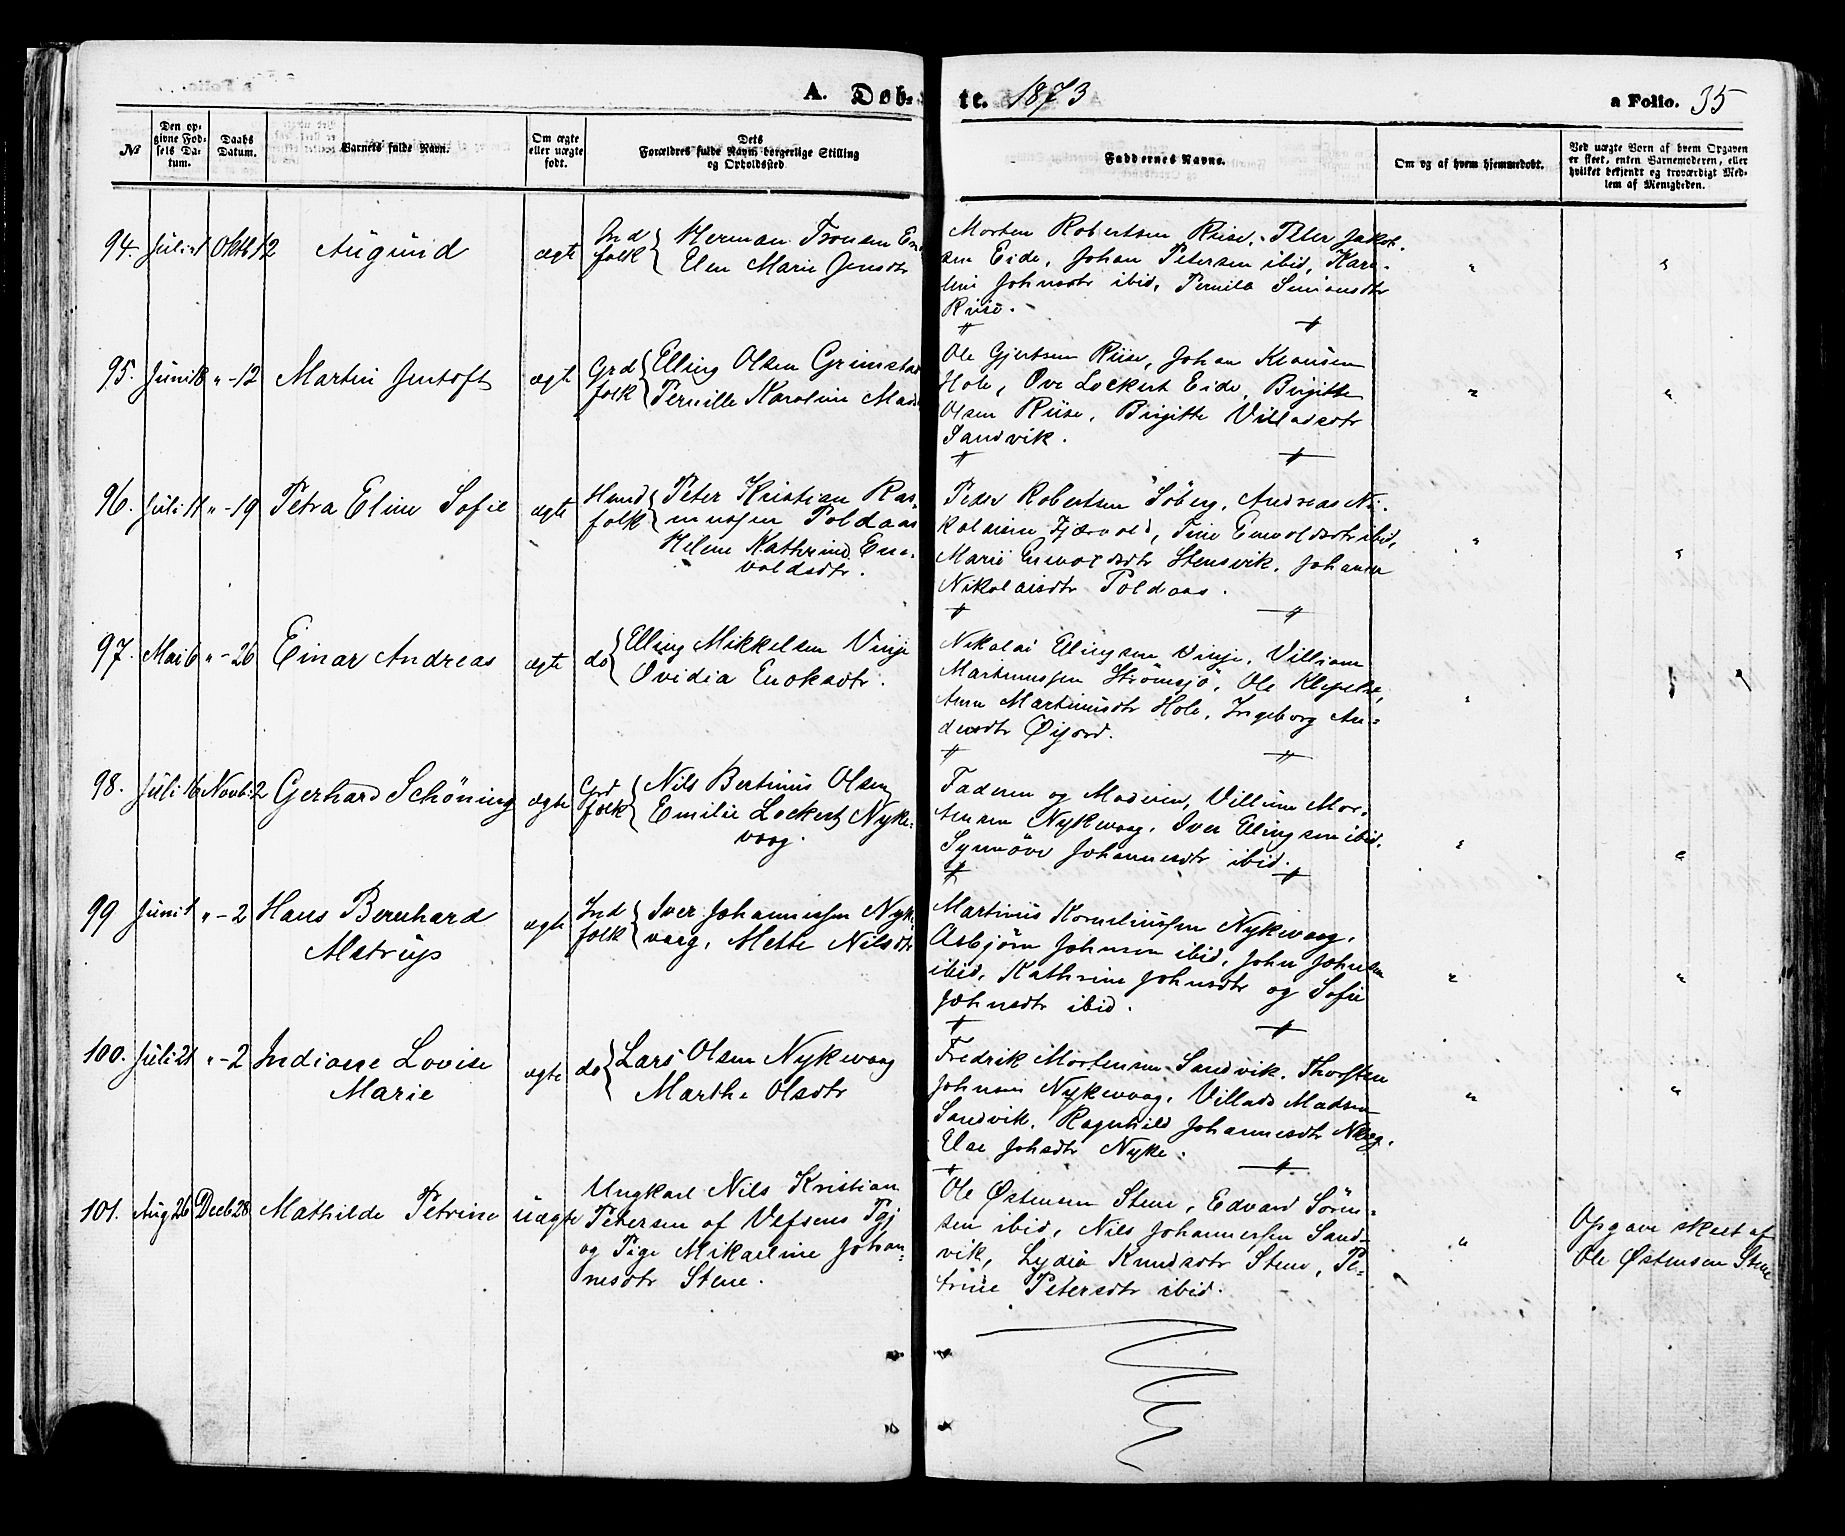 A. Døb-
te. 1873
a Folio. 35
№
Den op-
givne Fød-
sels Da-
tum.
Daabs
Datum.
Barnets fulde Navn.
Om ægte
eller uægte
født.
Dets
Forældres fulde Navn borgerlige Stilling
og Opholdssted.
Faddernes Navne.
Om og af hvem hjemmedøbt.
Ved uægte Børn af hvem Opgaven
er skeet, enten Barnemoderen, eller
hvilket bekjendt og troværdigt Med-
lem af Menigheden.
94. Juli 1 Oktb 12 Augund ægte
Ind
folk
Herman Tronsen
Elen Marie Jensdtr
Morten Robertsen Riise, Peter Jakob-
sen Eide, Johan Petersen ibid, Kare-
line Johnsdtr ibid, Pernila Simonsdtr
Riise.
95. Juni 18 " - 12 Martin Jentoft ægte
Grd
folk
Elling Olsen Grimstad
Pernille Karoline Mads
Ole Gjertsen Riise, Johan Klausen
Hole, Ove Lockert Eide, Birgitte
Olsen Riise, Birgitte Villadsdtr
Sandvik.
96. Juli 11 " - 19 Petra Eline Sofie ægte
Huus
folk
Peter Kristian Ras-
mussen Poldaas
Helene Kathrine Ene-
voldsdtr.
Peder Robertsen Söberg, Andreas Ni-
kolaisen Fjærvold, Tine Enevoldsdtr ibid,
Marie Enevoldsdtr Stensvik, Johanna
Nikolaisdtr Poldaas.
97. Mai 6 " - 26 Einar Andreas ægte do
Elling Mikkelsen Vinje
Ovidia Enoksdtr.
Nikolai Elingsen Vinje, Villiam
Martinussen Strömsjö, Ole
Anna Martinusdtr Hole, Ingeborg An-
dersdtr Öijord.
98. Juli 16 Novb: 2 Gerhard Schöning ægte
Grd
folk
Nils Bertinus Olsen
Emilie Lockert Nyke-
vaag.
Faderen og Moderen, Villum Mor-
tensen Nykevaag, Iver Elingsen ibid.
Synnöve Johannesdtr ibid.
99 Juni 1 " - 2 Hans Bernhard
Astrup
ægte
Ind
folk
Iver Johannessen Nyke-
vaag, Mette Nilsdtr
Martinus Korneliussen Nykevaag,
Asbjörn Johnsen ibid, John Johnsen
ibid, Kathrine Johnsdtr og Sofie
Johnsdtr ibid.
100. Juli 21 " - 2 Indiane Lovise
Marie
ægte do
Lars Olsen Nykevaag
Marthe Olsdtr
Fredrik Mortensen Sandvik, Thorsten
Johnsen Nykevaag, Villads Madsen
Sandvik, Ragnhild Johannesdtr
Else Johsdtr Nyke.
101. Aug 26 Decb 28 Mathilde Petrine uægte
Ungkarl Nils Kristian
Petersen af Vefsens Pgj
og Pige Mikaeline Johan-
nesdtr Stene.
Ole Østensen Stene, Edvard Sören-
sen ibid, Nils Johannessen Sand-
vik, Lydia Knudsdtr Stene, Pe-
trine Petersdtr ibid.
Opgave skeet af
Ole Østensen Stene